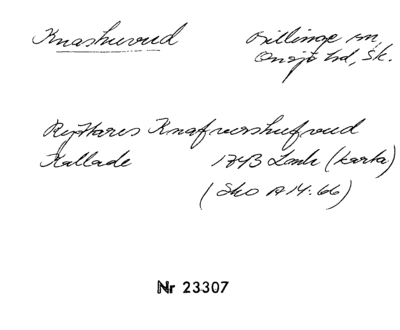 Knashuvud Billinge sn,
Onsjö hd, Sk.
Ryttares Knafvershufvud
Kallade 1743 Lmh (karta)
(Sko A 14:66)
Nr 23307